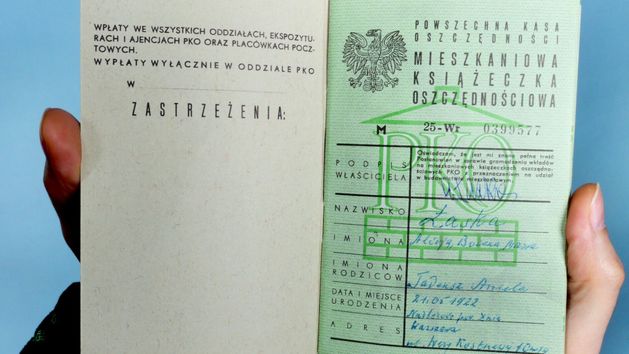 WPŁATY WE WSZYSTKICH ODDZIAŁACH, EKSPOZYTU-
RACH I AJENCJACH PKO ORAZ PLACÓWKACH POCZ-
TOWYCH.
WYPŁATY WYŁĄCZNIE W ODDZIALE PKO
W
ZASTRZEŻENIA:
POWSZECHNA KASA
OSZCZĘDNOŚCI
MIESZKANIOWA
KSIĄŻECZKA
OSZCZĘDNOŚCIOWA
M 25-Wr 0399577
PKO
Oświadczam, że jest mi znana pełna treść
Postanowień w sprawie gromadzenia wkładów
na mieszkaniowych książeczkach oszczędno-
ściowych PKO przeznaczonym na udział
w budownictwie mieszkaniowym.
PODPIS
WŁAŚCICIELA
NAZWISKO Łaska
IMIONA
IMIONA
RODZICÓW Tadeusz Aniela
DATA I MIEJSCE
URODZENIA
ADRES Warszawa